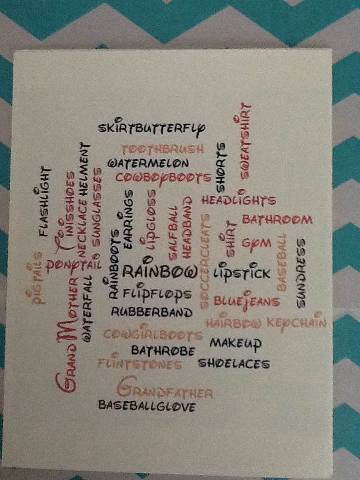 SKIRTBUTTERFLY
TOOTHBRUSH
WATERMELON
COWBOYBOOTS
SWEATSHIRT
SHORTS
HELMENT
NECKLACE
TINISSHOES
FLASHLIGHT
SUNGLASSES
EARRINGS
LIPGLOSS
SALFBALL
HEADBAND
HEADLIGHTS
BATHROOM
SHIRT
GYM
SOCCERCLEATS
BASEBALL
SUNDRESS
PONYTAIL
PIGTAILS
RAINBOOTS
RAINBOW
LIPSTICK
GRANDMOTHER
WATERFALL
FLIPFLOPS
BLUEJEANS
RUBBERBAND
HAIRBOW KEYCHAIN
COWGIRLBOOTS
MAKEUP
BATHROBE
FLINTSTONES
SHOELACES
GRANDFATHER
BASEBALLGLOVE